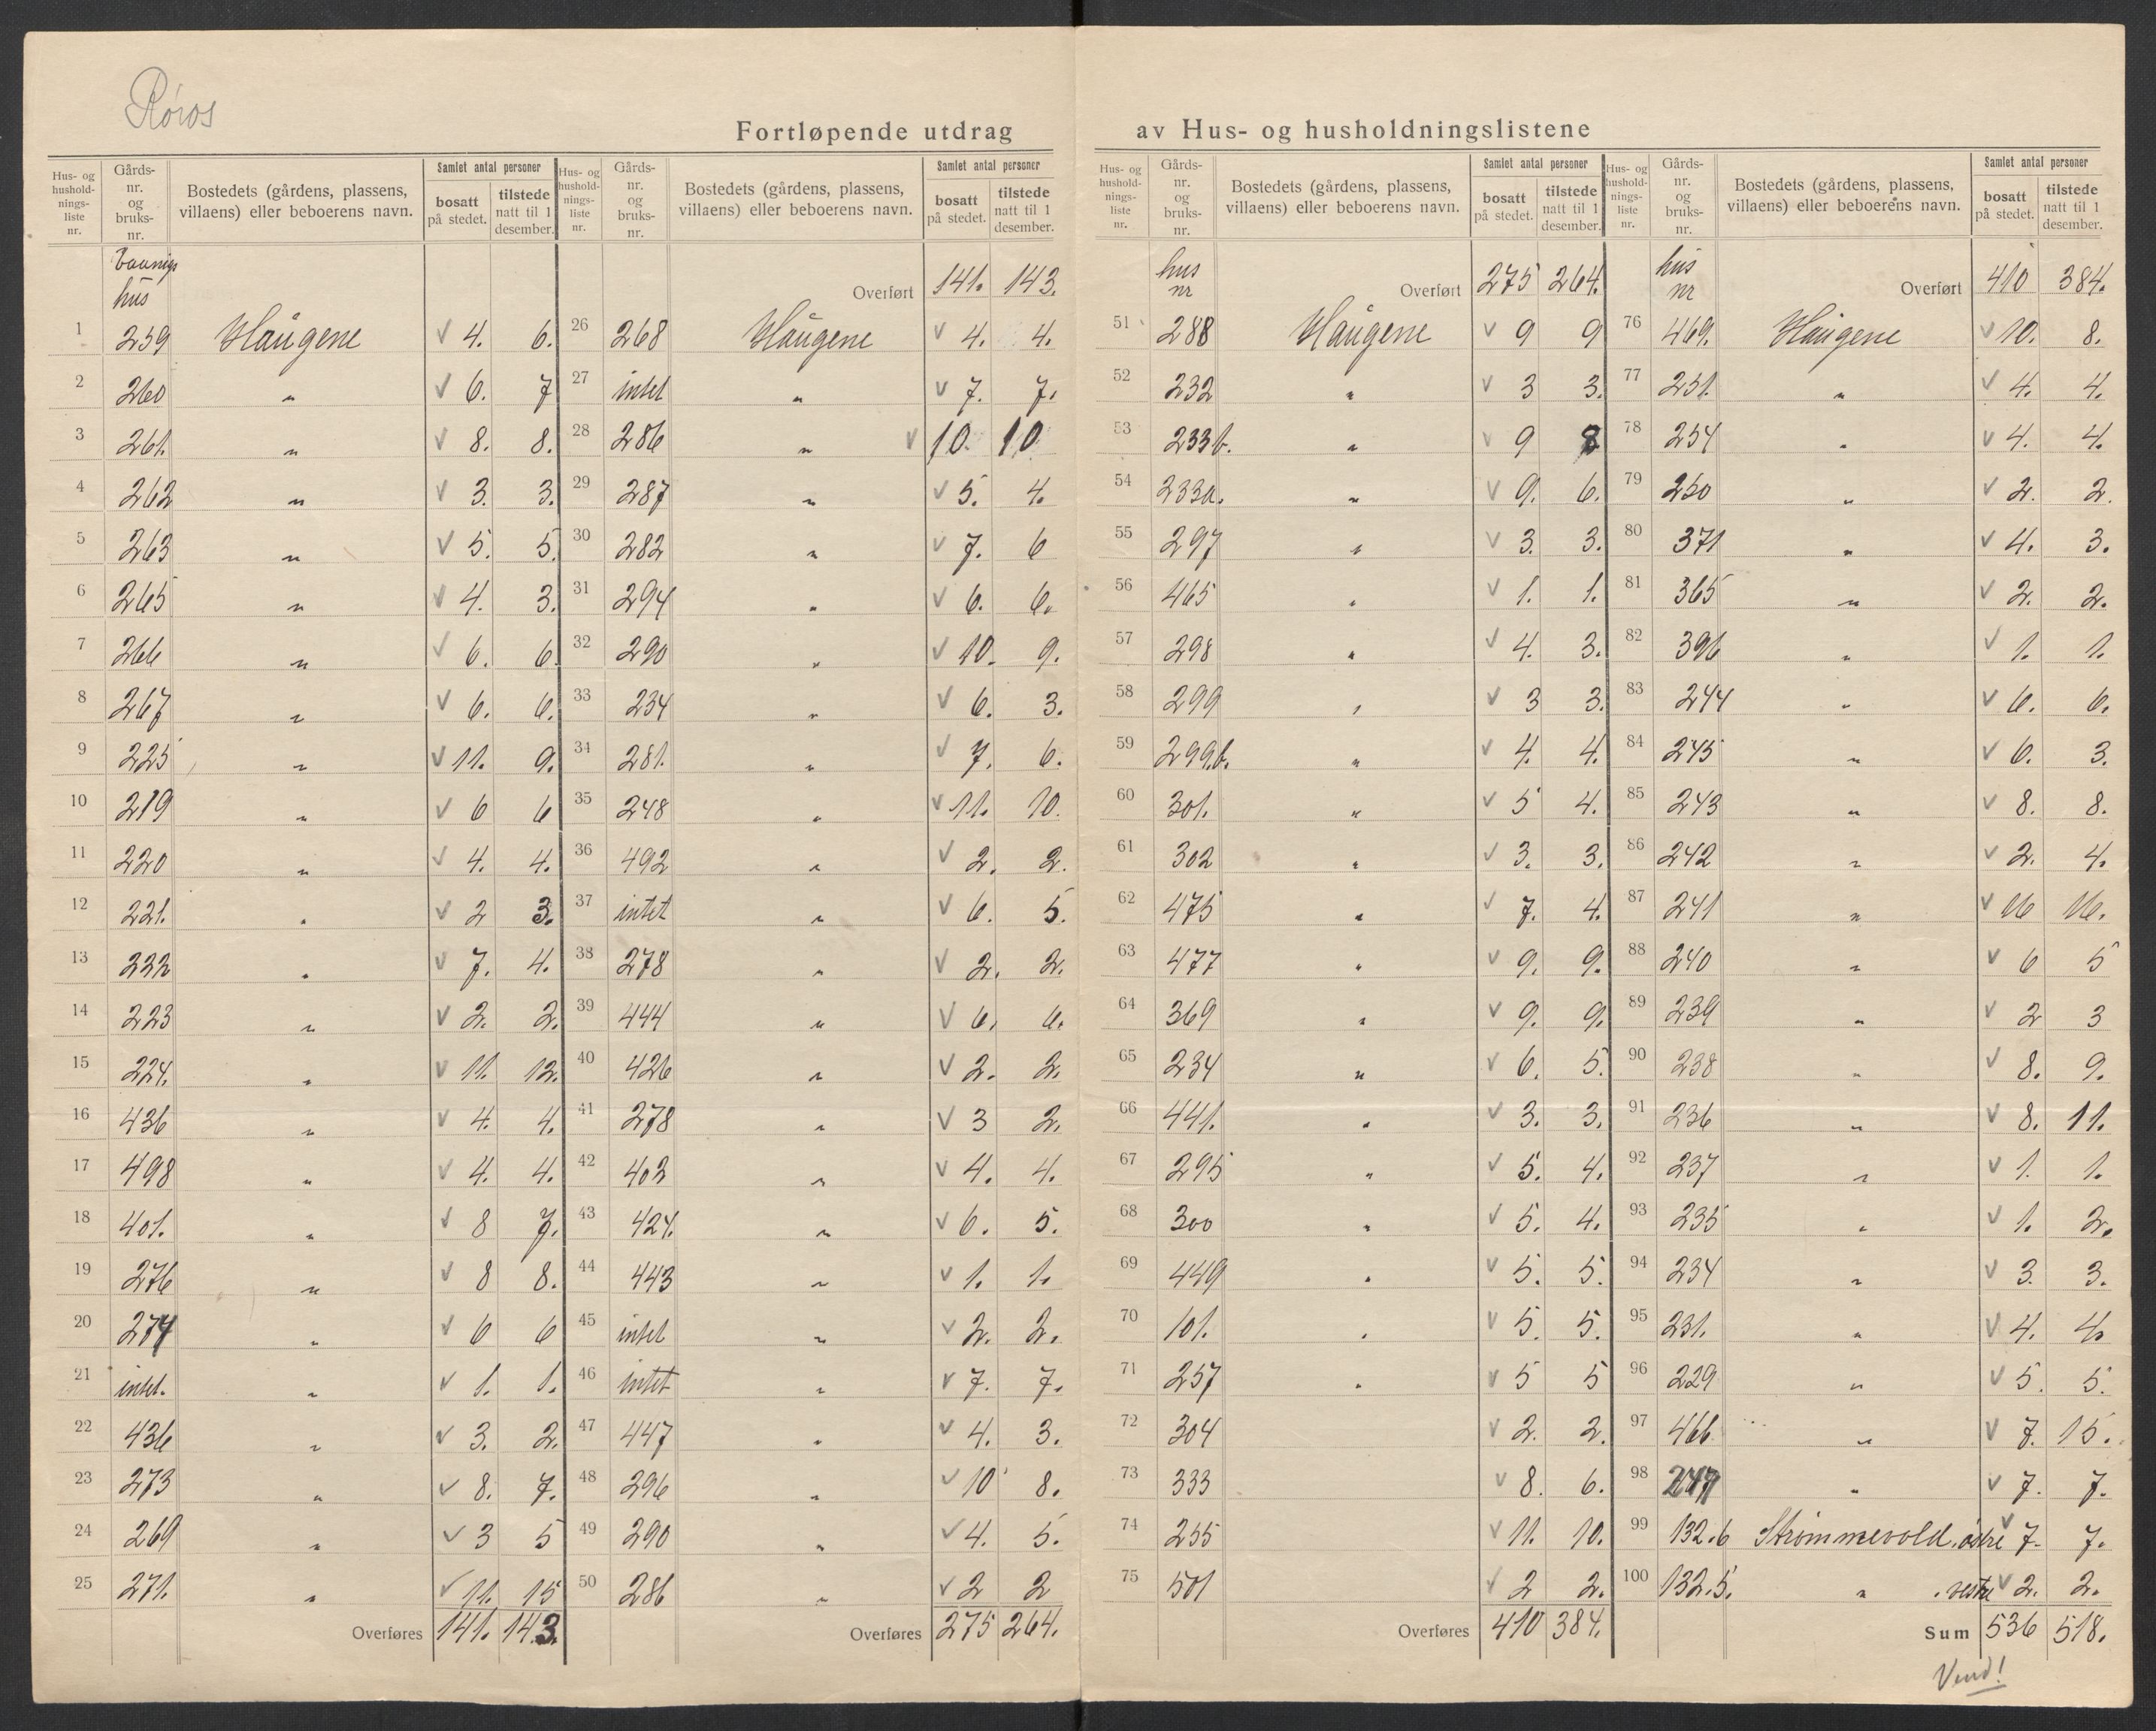 Røros
Fortløpende utdrag av Hus- og husholdningslistene
Hus- og husholdningsliste nr. Gårds-nr. og bruks-nr. Bostedets (gårdens, plassens, villaens) eller beboerens navn. Samlet antal personer bosatt på stedet. tilstede natt til 1 desember.
Hus- og husholdningsliste nr. Gårds-nr. og bruks-nr. Bostedets (gårdens, plassens, villaens) eller beboerens navn. Samlet antal personer bosatt på stedet. tilstede natt til 1 desember.
Hus- og husholdningsliste nr. Gårds-nr. og bruks-nr. Bostedets (gårdens, plassens, villaens) eller beboerens navn. Samlet antal personer bosatt på stedet. tilstede natt til 1 desember.
Hus- og husholdningsliste nr. Gårds-nr. og bruks-nr. Bostedets (gårdens, plassens, villaens) eller beboerens navn. Samlet antal personer bosatt på stedet. tilstede natt til 1 desember.
hus
1 259 Haugene √ 4. 6.
2 260 " √ 6. 7
3 261. " √ 8. 8.
4 262 " √ 3. 3.
5 263 " √ 5. 5.
6 265 " √ 4. 3.
7 266 " √ 6. 6.
8 267 " √ 6. 6.
9 225 " √ 11. 9.
10 219 " √ 6 6
11 220 " √ 4. 4.
12 221. " √ 2 3.
13 222 " √ 7. 4.
14 223 " √ 2. 2.
15 224. " √ 11. 12.
16 436 " √ 4. 4.
17 498 " √ 4. 4.
18 401. " √ 8 7.
19 276 " √ 8 8.
20 274 " √ 6 6
21 intet. " √ 1. 1.
22 436 " √ 3. 2.
23 273 " √ 8. 7.
24 269 " √ 3 5
25 271. " √ 11. 15
Overføres 141. 143.
Overført 141. 143.
26 268 Haugene √ 4. 4.
27 intet " √ 7. 7.
28 286 " √ 10. 10
29 287 " √ 5. 4.
30 282 " √ 7. 6
31 294 " √ 6. 6.
32 290 " √ 10. 9.
33 234 " √ 6. 3.
34 281. " √ 7. 6.
35 248 " √ 11. 10.
36 492 " √ 2. 2.
37 intet " √ 6. 5.
38 278 " √ 2. 2.
39 444 " √ 6. 6.
40 426 " √ 2. 2.
41 278 " √ 3 2.
42 403 " √ 4. 4.
43 424. " √ 6. 5.
44 443 " √ 1. 1.
45 intet " √ 2. 2.
46 intet " √ 7. 7.
47 447 " √ 4. 3.
48 296 " √ 10 8.
49 290 " √ 4. 5.
50 286 " √ 2 2
Overføres 275 264.
hus nr Overført 275 264.
51 288 Haugene √ 9 9
52 232 " √ 3 3.
53 233b. " √ 9 8
54 233a. " √ 9. 6.
55 297 " √ 3. 3.
56 465 " √ 1. 1.
57 298 " √ 4. 3.
58 299 " √ 3 3.
59 299.b. " √ 4. 4.
60 301. " √ 5 4.
61 302 " √ 3. 3.
62 475 " √ 7. 4.
63 477 " √ 9. 9.
64 369 " √ 9. 9.
65 234 " √ 6. 5.
66 441. " √ 3. 3.
67 295 " √ 5. 4.
68 300 " √ 5. 4.
69 449 " √ 5. 5.
70 101. " √ 5. 5.
71 257 " √ 5 5
72 304 √ 2. 2.
73 333 √ 8. 6.
74 255 √ 11. 10.
75 501 √ 2 2.
Overføres 410 384.
hus nr Overført 410 384.
76 469. Haugene √ 10. 8.
77 251. " √ 4. 4.
78 254 " √ 4. 4.
79 250 " √ 2. 2.
80 371 " √ 4. 3.
81 365 " √ 2. 2.
82 396 " √ 1. 1.
83 244 " √ 6. 6.
84 245 " √ 6. 3.
85 243 " √ 8. 8.
86 242 " √ 2. 4.
87 241 " √ 16 16.
88 240 " √ 6 5
89 239 " √ 2 3
90 238 " √ 8. 9.
91 236 " √ 8. 11.
92 237 " √ 1. 1.
93 235 " √ 1. 2.
94 234 " √ 3. 3.
95 231. " √ 4. 4.
96 229 " √ 5. 5.
97 466 " √ 7. 15.
98 " √ 7. 7.
99 132.6 Strømmevold. østre √ 7. 7.
100 132.5. " . vestre √ 2. 2.
Sum 536 518.
Vend!